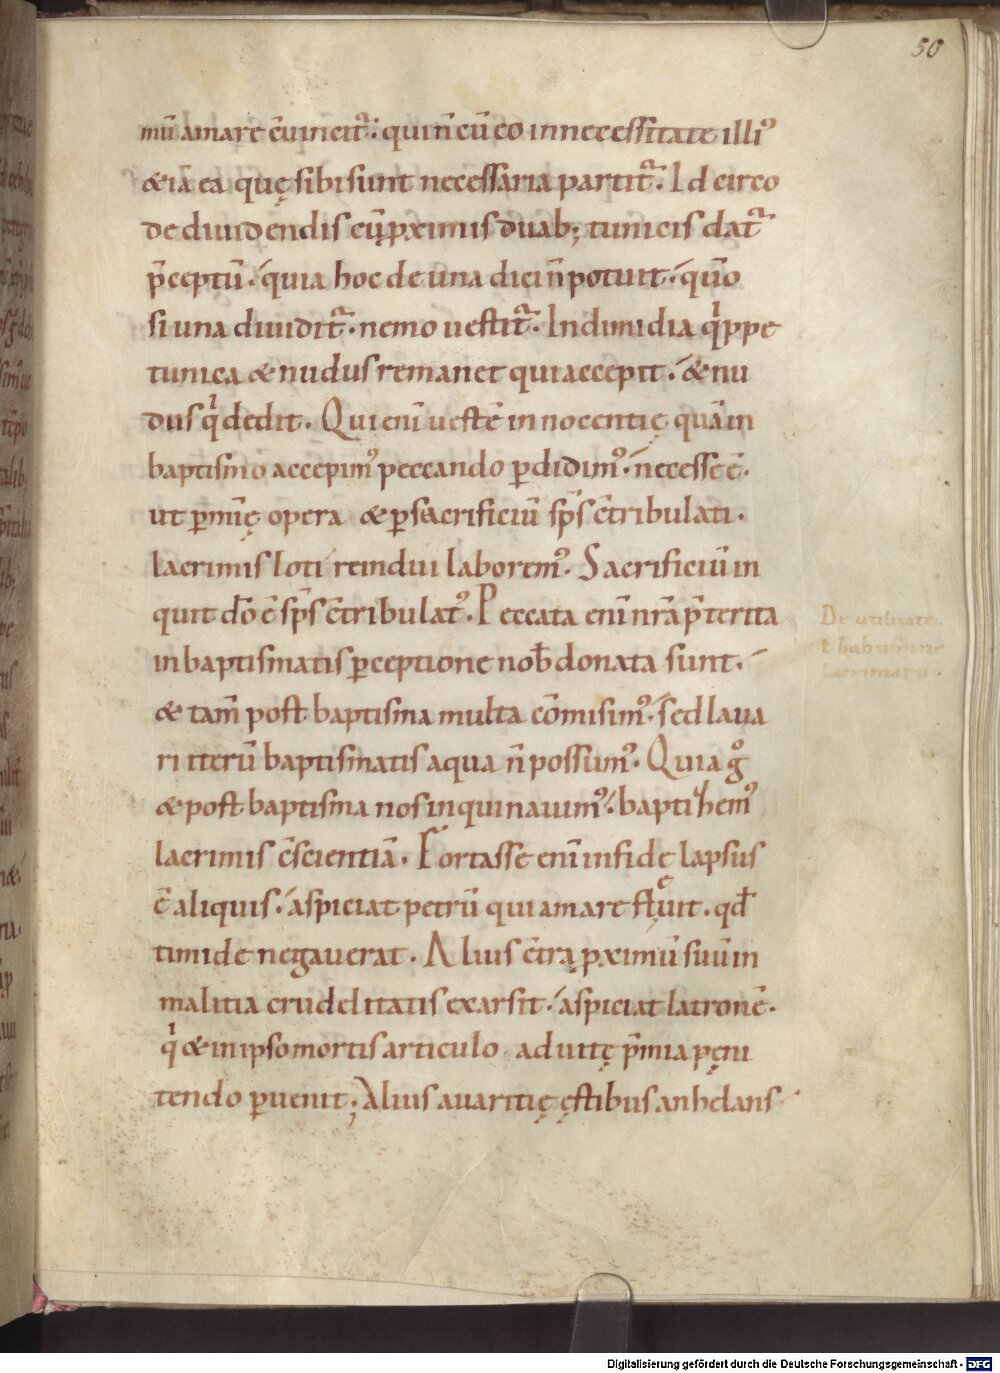 50
mū amare c̄uincit᷑. qui n̄ cū eo in necessitate illi᷒
&iā ea quę sibi sunt necessaria partit᷑. Idcirco
de diuidendis cū p̱ximis duab; tunicis dat᷑
p̄ceptū. quia hoc de una dici n̄ potuit. qm̄o
si una diuidit᷑. nemo uestit᷑. In dimidia qͥppe
tunica & nudus remanet qui accepit. & nu
dus qͥ dedit. Qui eni̅ uestē innocentię quā in
baptismo accepim᷒ peccando ꝑdidim᷒. necesse ē.
ut ꝑ mi̅ę opera & ꝑ sacrificiū sp̄s c̄tribulati.
lacrimis loti reindui laborem᷒. Sacrificiū in
quit dō ē sp̄s c̄tribulat᷒. Peccata eni̅ nr̄a p̄terita
in baptismatis ꝑceptione nob̄ donata sunt.
& tam̄ post baptisma multa cōmisim᷒. sed laua
ri iterū baptismatis aqua n̄ possum᷒. Quia gͦ
& post baptisma nos inquinauim᷒. baptizem᷒
lacrimis c̄scientiā. Fortasse eni̅ in fide lapsus
ē aliquis. aspiciat petrū qui amare fleuit. qd̄
timide negauerat. Alius c̄tra p̱ximū suū in
malitia crudelitatis exarsit. aspiciat latronē.
qͥ & in ipso mortis articulo ad uitę p̄mia pęni
tendo ꝑuenit; Alius auaritię ęstibus anhelans
De utilitate
lacrimarū.
Digitalisierung gefördert durch die Deutsche Forschungsgemeinschaft - DFG